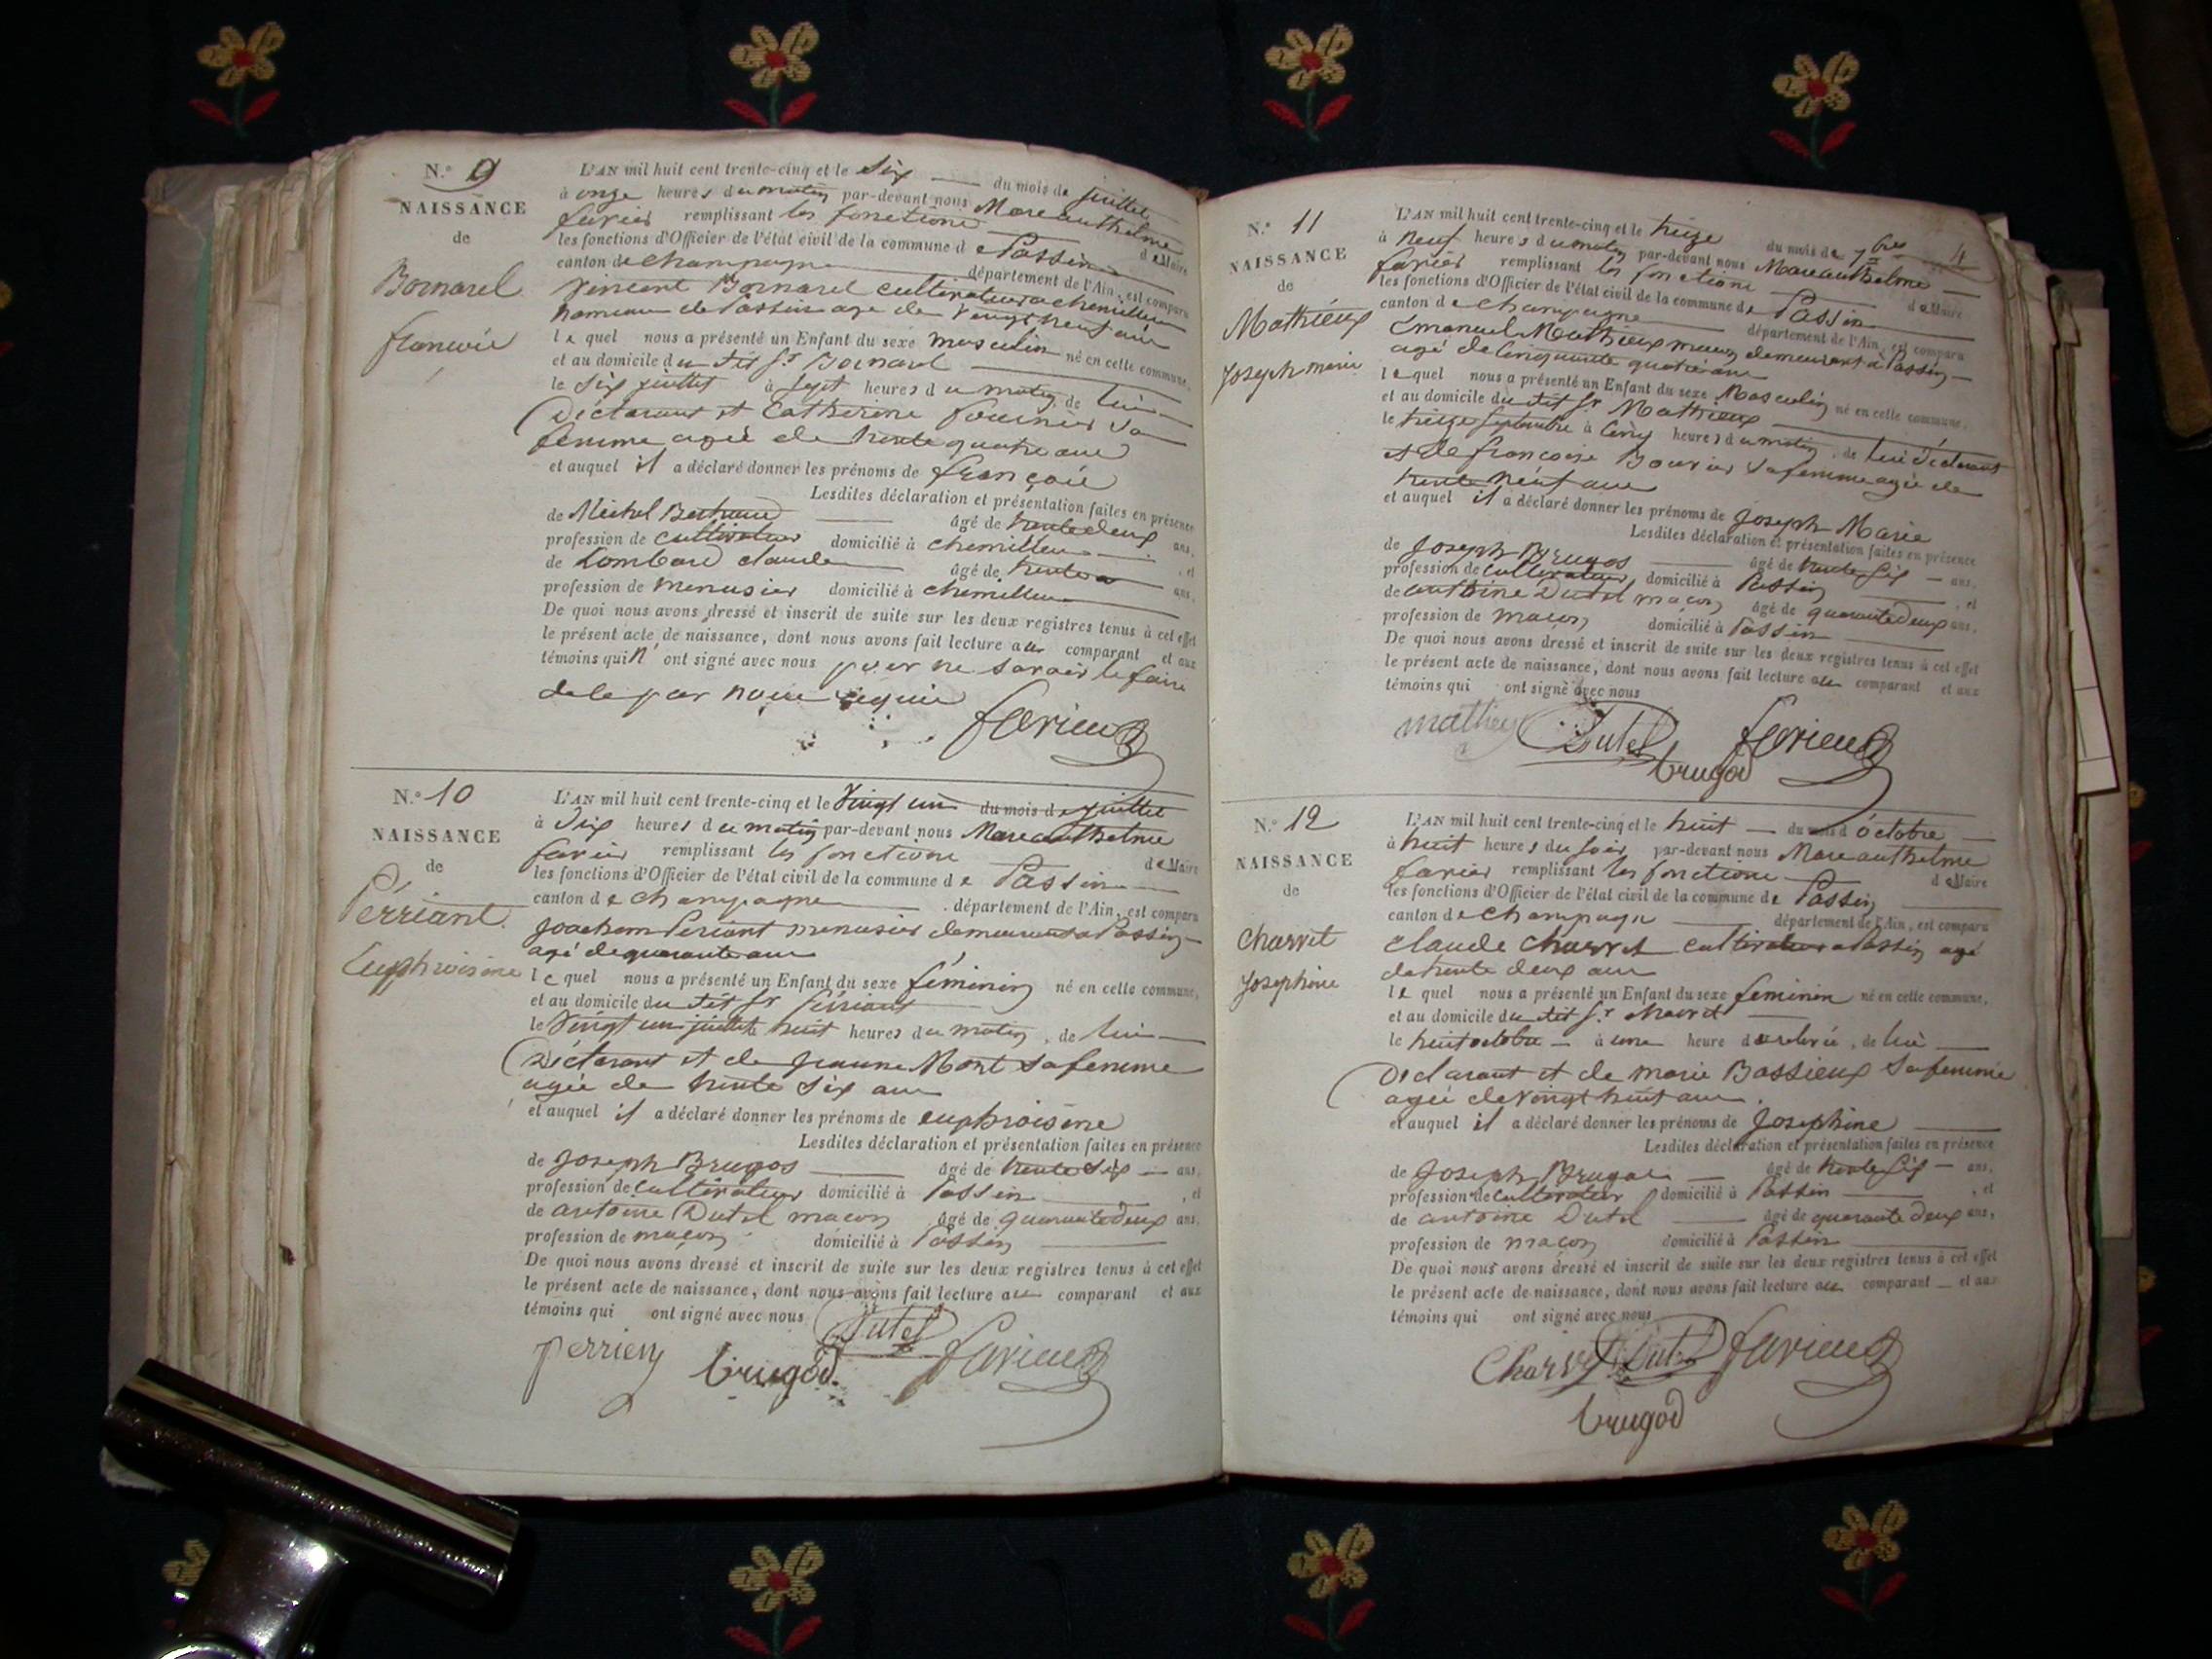 N.º 9
NAISSANCE
de
Bornarel
francois
L'AN mil huit cent trente-cinq et le Six du mois de juillet
à onze heures du matin par-devant nous Marc anthelme
favier remplissant les fonctions de Maire
les fonctions d'Officier de l'état civil de la commune de Passin
canton de champagne département de l'Ain, est comparu
Vincent Bornarel cultivateur a chemillieu
hameau de Passin age de Vingt neuf ans
lequel nous a présenté un Enfant du sexe masculin né en cette commune,
et au domicile du dit Sr Bornarel
le Six juillet à sept heures du matin, de lui
Déclarant et Catherine fournier sa
femme agée de trente quatre ans
et auquel il a déclaré donner les prénoms de françois
Lesdites déclaration et présentation faites en présence
de Michel Bertrand âgé de trente deux ans,
profession de cultivateur domicilié à chemillieu, et
de Lombard claude âgé de trente ans,
profession de menusier domicilié à chemillieu
De quoi nous avons dressé et inscrit de suite sur les deux registres tenus à cet effet
le présent acte de naissance, dont nous avons fait lecture au comparant et aux
témoins qui n'ont signé avec nous pour ne savoir le faire
de le par nous requis
favier
N.º 10
NAISSANCE
de
Pérriant
Euphroisine
L'AN mil huit cent trente-cinq et le Vingt un du mois de juillet
à Dix heures du matin par-devant nous Marc anthelme
favier remplissant les fonctions de Maire
les fonctions d'Officier de l'état civil de la commune de Passin
canton de champagne département de l'Ain, est comparu
Joachem Periant menusier demeurant a Passin
agé de quarante ans
lequel nous a présenté un Enfant du sexe féminin né en cette commune,
et au domicile du dit Sr Périant
le Vingt un juillet huit heures du matin, de lui
Déclarant et de jeanne Mont sa femme
agée de trente six ans
et auquel il a déclaré donner les prénoms de euphroisine
Lesdites déclaration et présentation faites en présence
de Joseph Brugos âgé de trente six ans,
profession de cultivateur domicilié à Passin, et
de antoine Dutel macon âgé de quarante deux ans,
profession de maçon domicilié à Passin
De quoi nous avons dressé et inscrit de suite sur les deux registres tenus à cet effet
le présent acte de naissance, dont nous avons fait lecture au comparant et aux
témoins qui ont signé avec nous
Dutel
perrien brugod. favier
4
N.º 11
NAISSANCE
de
Mathieux
Joseph marie
L'AN mil huit cent trente-cinq et le treize du mois de 7bre
à Neuf heures du matin par-devant nous Marc anthelme
favier remplissant les fonctions de Maire
les fonctions d'Officier de l'état civil de la commune de Passin
canton de champagne département de l'Ain, est comparu
Emanuel Mathieux demeurant a Passin
agé de Cinquante quatre ans
lequel nous a présenté un Enfant du sexe Masculin né en cette commune,
et au domicile du dit Sr Mathieux
le treize Septembre à Cinq heures du matin, de lui Déclarant
et de francoise Bouvier sa femme agée de
trente neuf ans
et auquel il a déclaré donner les prénoms de Joseph Marie
Lesdites déclaration et présentation faites en présence
de Joseph Brugos âgé de trente six ans,
profession de cultivateur domicilié à Passin, et
de antoine Dutel macon âgé de quarante deux ans,
profession de macon domicilié à Passin
De quoi nous avons dressé et inscrit de suite sur les deux registres tenus à cet effet
le présent acte de naissance, dont nous avons fait lecture au comparant et aux
témoins qui ont signé avec nous
mathey Dutel favier
brugod
N.º 12
NAISSANCE
de
Charvet
Josephine
L'AN mil huit cent trente-cinq et le huit du mois d'octobre
à huit heures du soir par-devant nous Marc anthelme
favier remplissant les fonctions de Maire
les fonctions d'Officier de l'état civil de la commune de Passin
canton de champagne département de l'Ain, est comparu
claude charvet cultivateur a Passin agé
de trente deux ans
lequel nous a présenté un Enfant du sexe feminin né en cette commune,
et au domicile du dit Sr charvet
le huit octobre à une heure de relevée, de lui
Déclarant et de marie Bassieux sa femme
agée de Vingt huit ans
et auquel il a déclaré donner les prénoms de Josephine
Lesdites déclaration et présentation faites en présence
de Joseph Brugos âgé de trente six ans,
profession de cultivateur domicilié à Passin, et
de antoine Dutel âgé de quarante deux ans,
profession de macon domicilié à Passin
De quoi nous avons dressé et inscrit de suite sur les deux registres tenus à cet effet
le présent acte de naissance, dont nous avons fait lecture au comparant et aux
témoins qui ont signé avec nous
Charvet Dutel favier
brugod